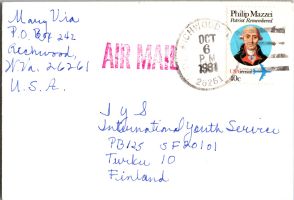 Mary Via
P.O. Box 242
Richwood,
W.Va. 26261
U.S.A.
AIR MAIL
RICHWOOD
OCT
6
PM
1981
26261
Philip Mazzei
Patriot Remembered
USAirmail
40c
I Y S
International Youth Service
PB125 SF20101
Turku 10
Finland